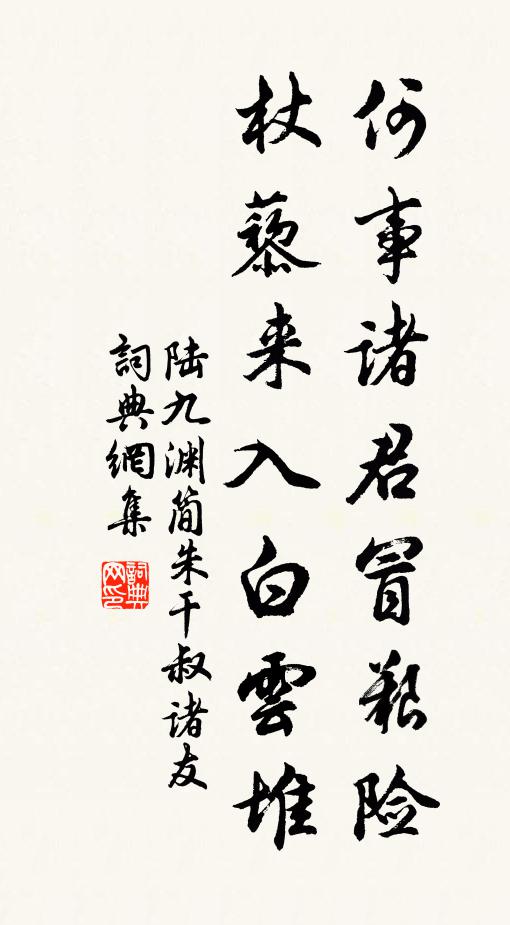 何事诸君冒艰险
杖藜来入白雲堆
陆九渊简朱干叔诸友
詞典網集
詞典
网印